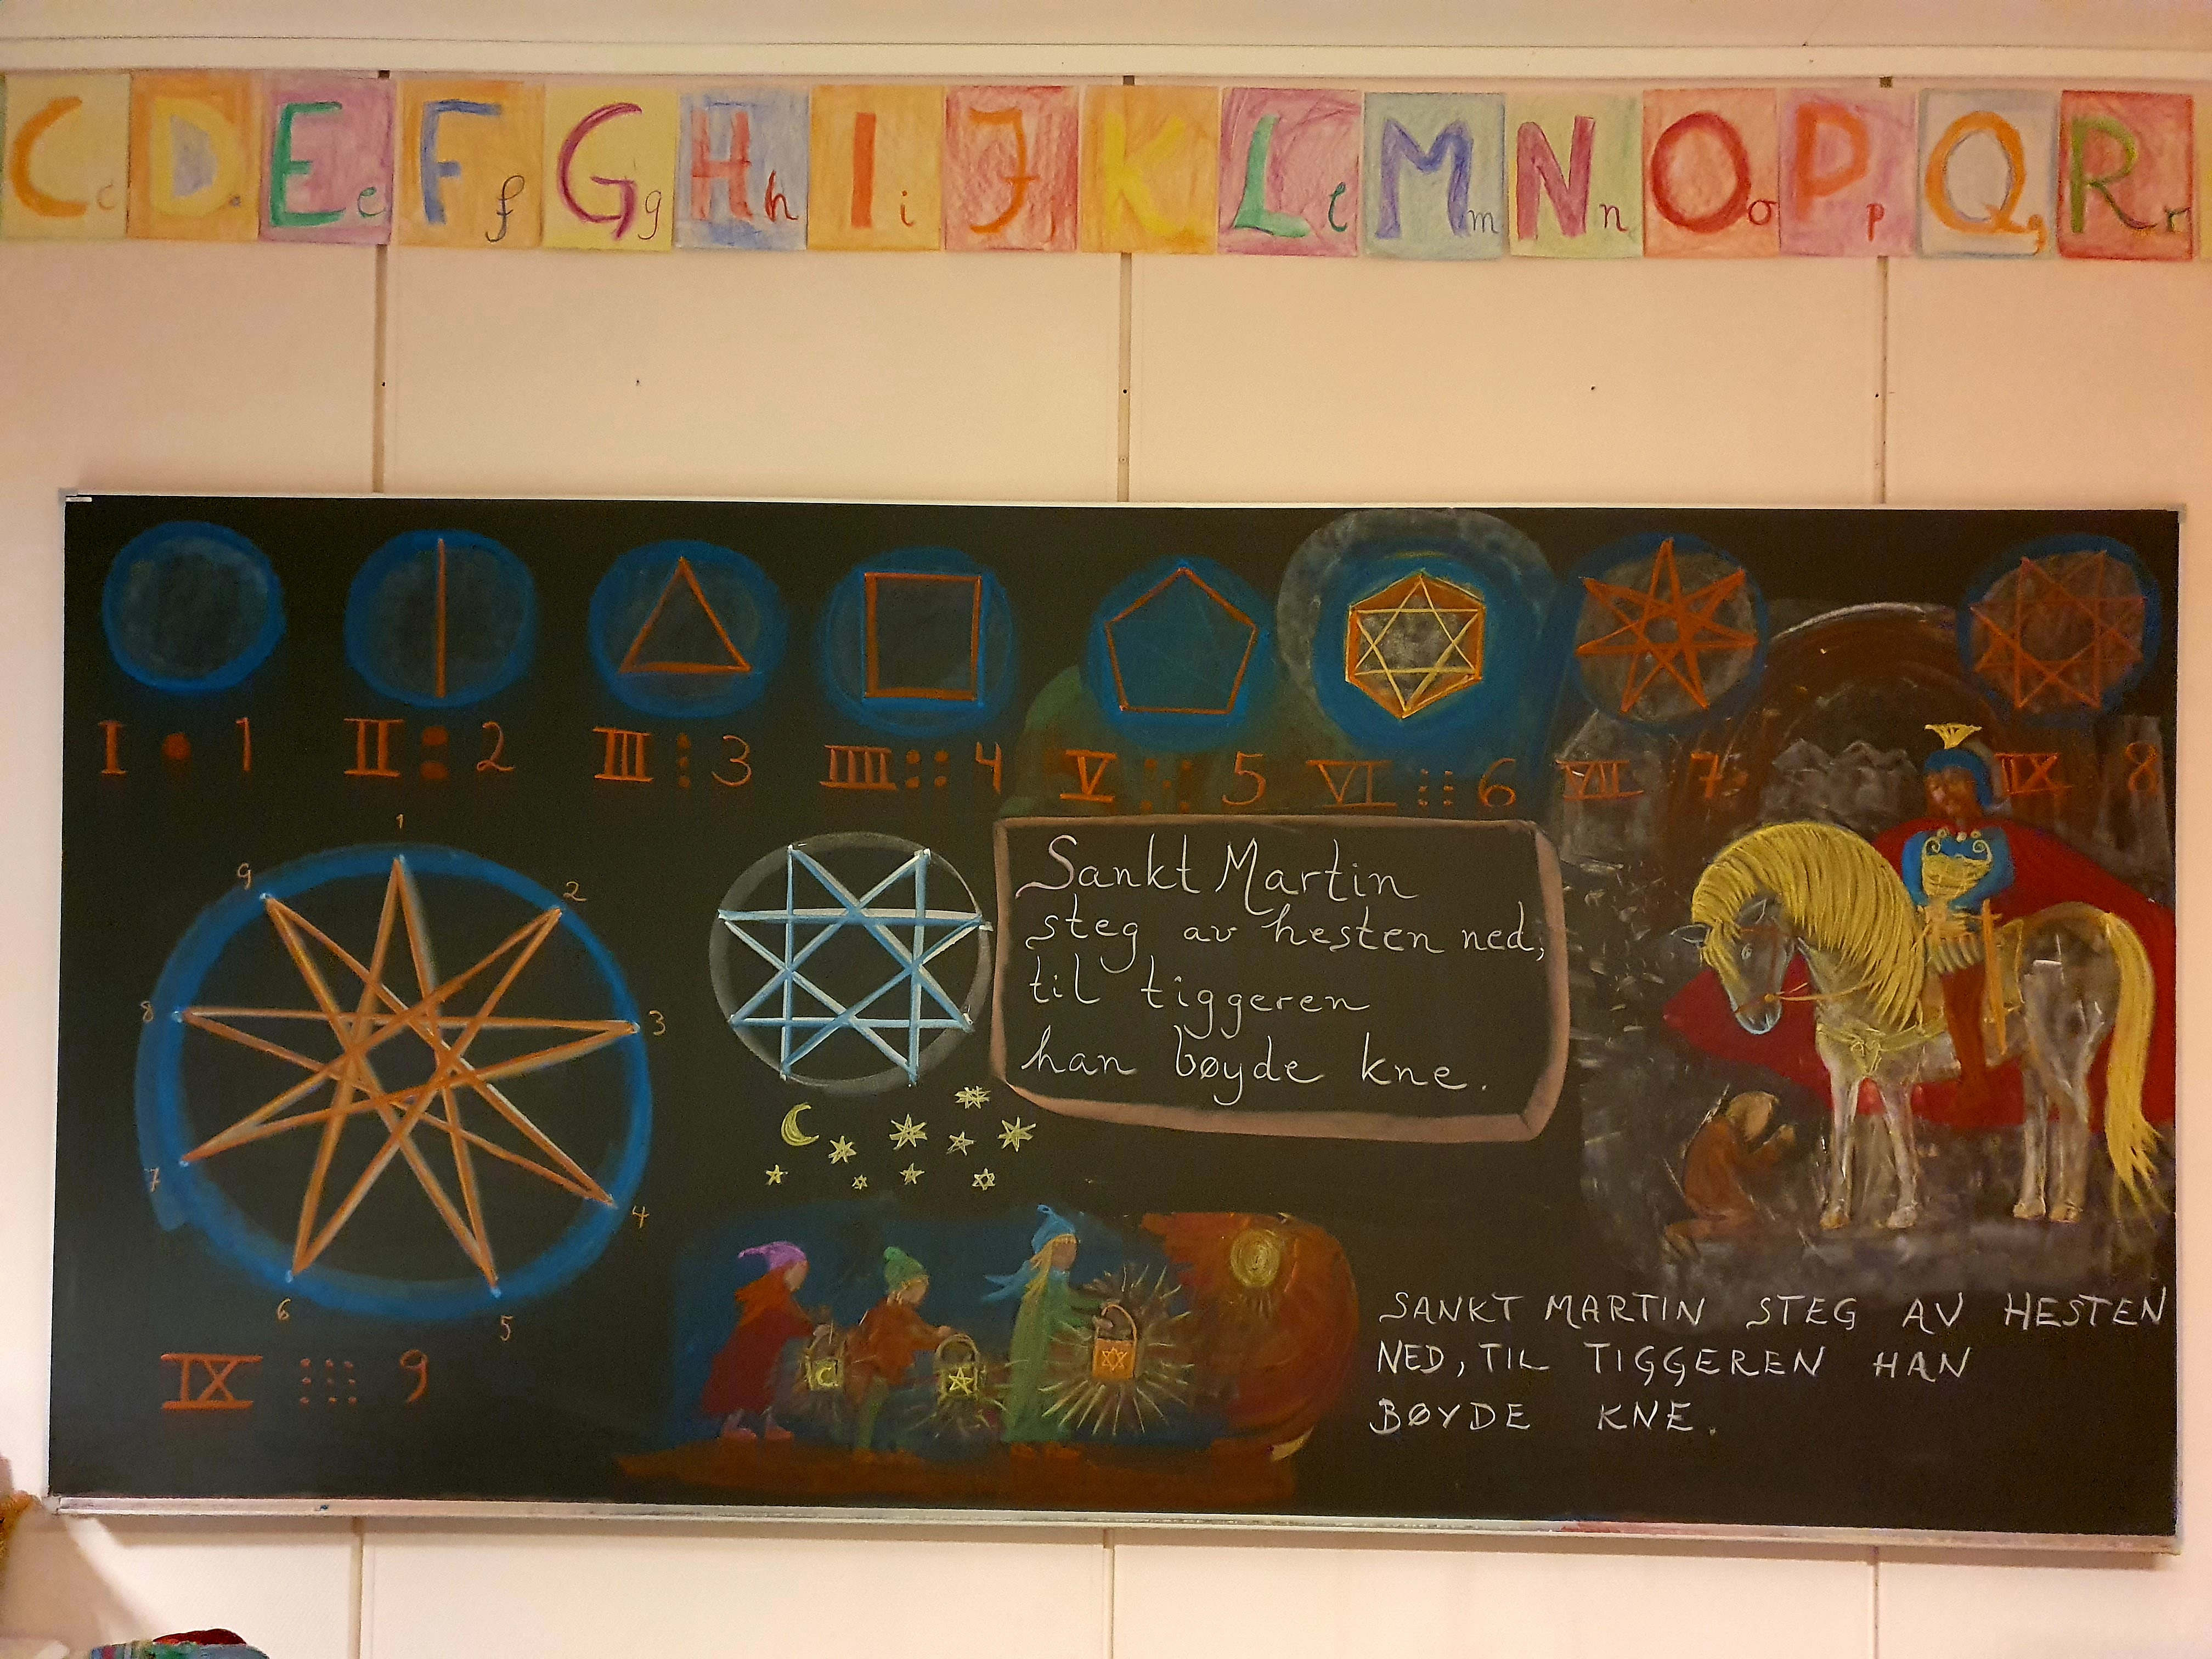 C c D E e F f G g H h I i J K L l M m N n O o P p Q q R r
I 1 II 2 III 3 IIII 4 V 5 VI 6 VII 7 IIX 8
1
9 2
8 3
7 4
6 5
IX 9
Sankt Martin
steg av hesten ned,
til tiggeren
han bøyde kne.
SANKT MARTIN STEG AV HESTEN
NED, TIL TIGGEREN HAN
BØYDE KNE.